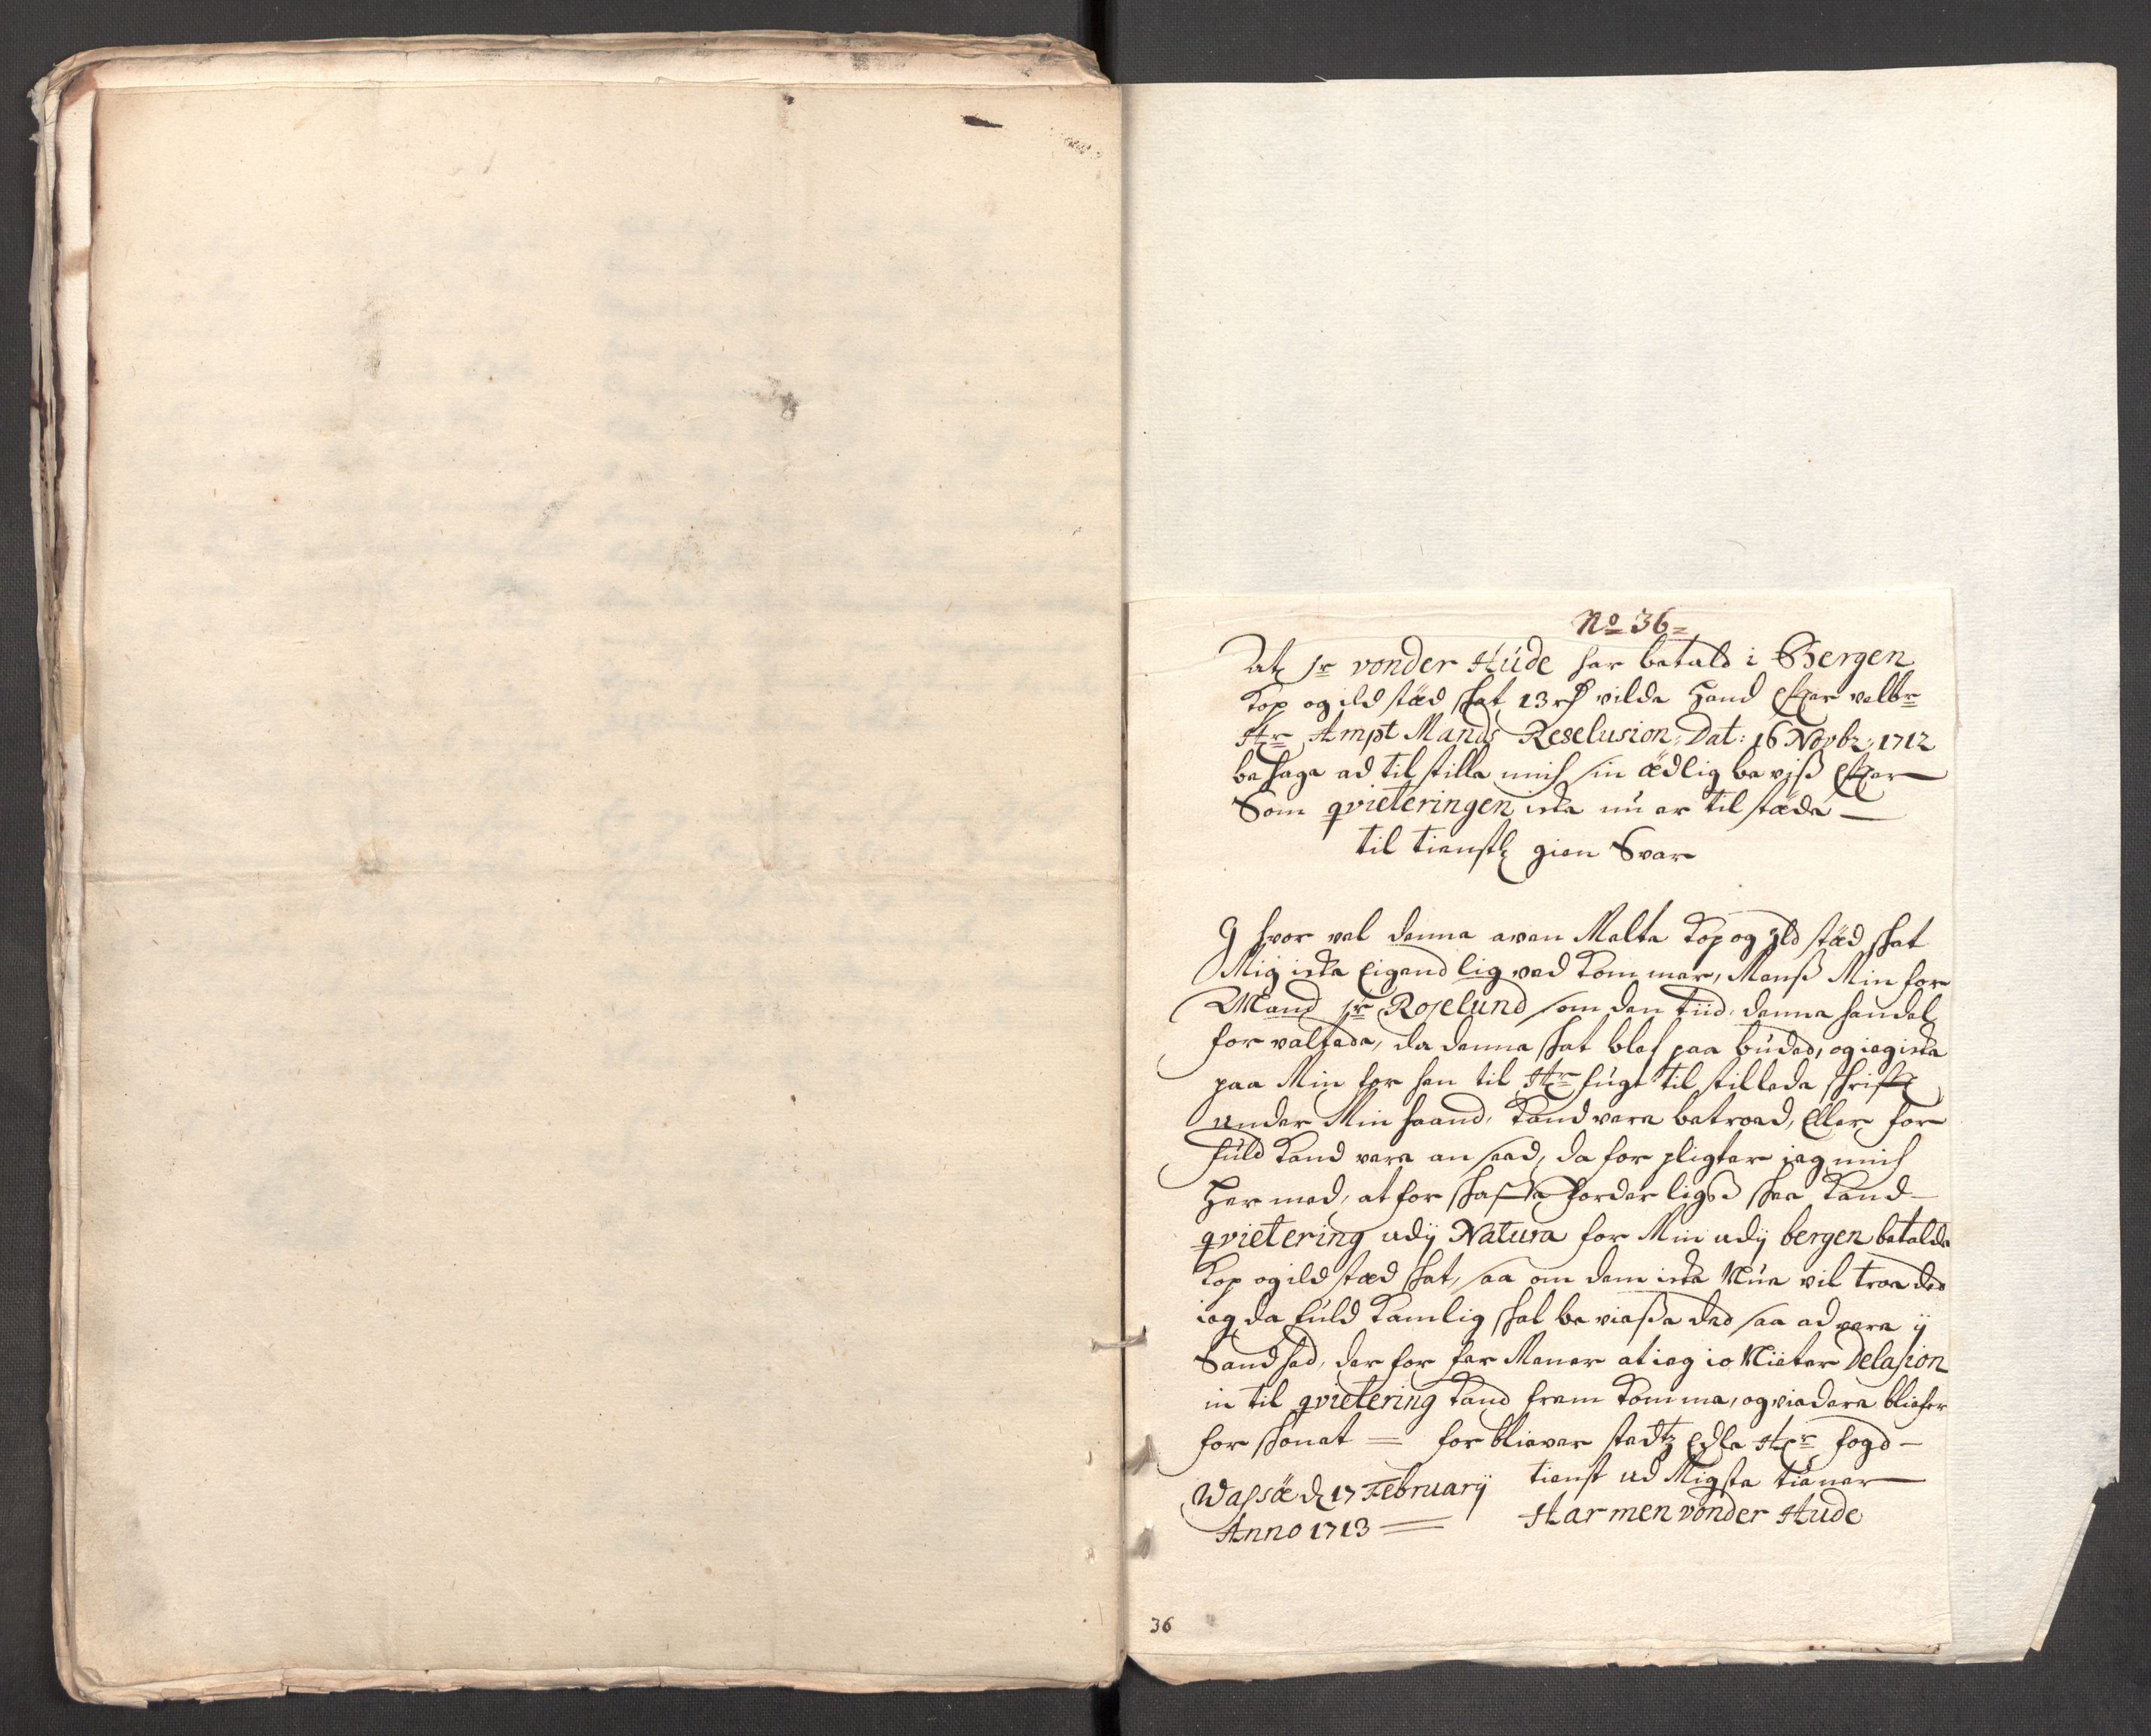 No 36
At Sr vonder Hude har betald i Bergen
Kop og ild stæd skat 13 rd vilde hand efter velbr
Hr Ampt Mands Reselusion, Dat: 16 Novbr: 1712
behage ad tilstille mich sin ædlig beviss efter
Som qvieteringen icke nu er til stæde
til tienstl gien Svar
I hvor vel denne oven Melte Kop og Ild stæd skat
Mig icke Eigendlig ved kommer, Menss Min for
Mand Sr Roselund som den tiid denne handel
for valtede, da denne skat blef paa buded, og ieg icke
paa Min for hen til Hr fugt til stillede skrift
under Min haand, kand vere betroed, Eller for
fuld kand vere an seed, da for pligter ieg mich
her med, at for skaffe forder ligst skee kand
qvietering udij Natura for Min udij bergen betalde
Kop og ild stæd skat, saa om dem icke Nue vil troe ded
ieg da fuld kamlig skal beviesse ded saa ad vere ij
Sandhed, der for her Mener at ieg io Niieter Delasion
in til qvietering kand frem komme, og viedere bliefer
for skonet = for bliever stedtz Edle Hr fogd
Wassöe d 17 Februarij tienst ud Migste tiener
Anno 1713 Harmen vonder Hude
36